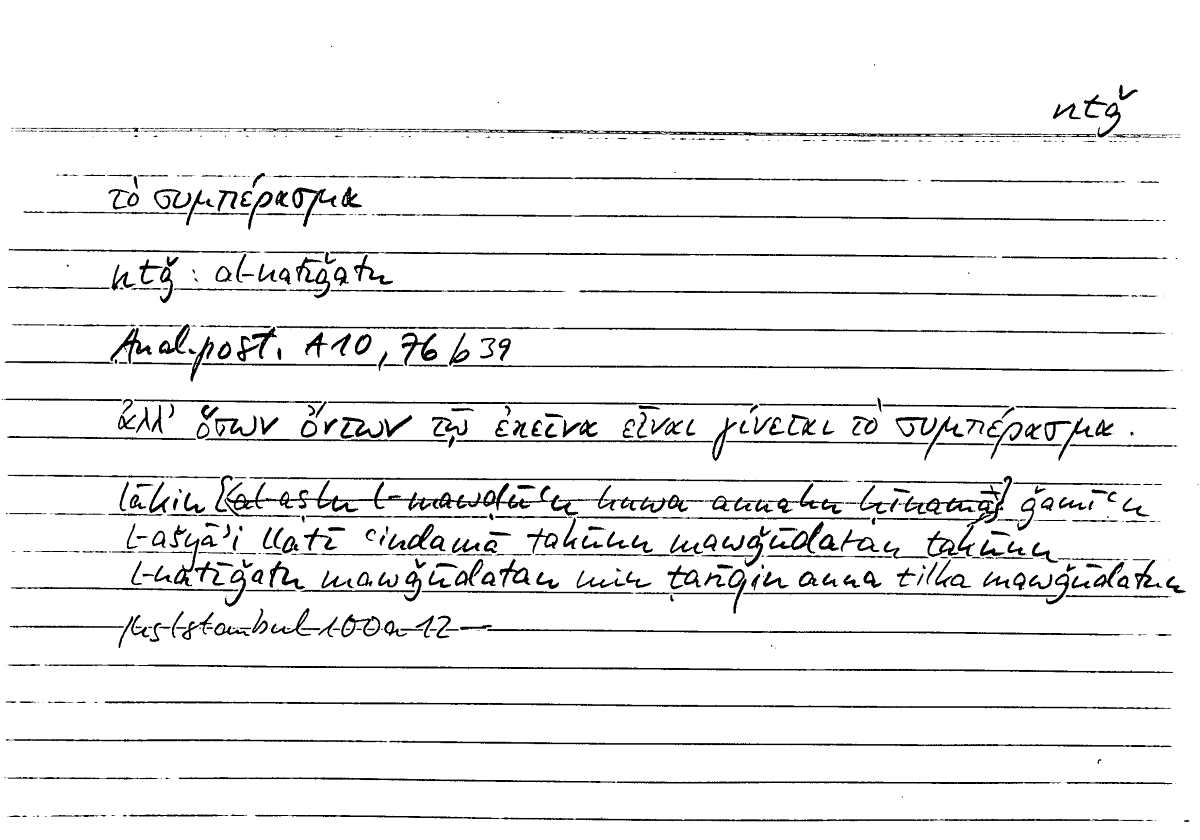 ntǧ
τὸ συμπέρασμα
ntǧ : al-natīǧatu
Anal. post. A10, 76 b 39
ἀλλ' ὅσων ὄντων τῷ ἐκεῖνα εἶναι γίνεται τὸ συμπέρασμα.
lākin [al-aṣlu l-mawḍūʿu huwa annahu ḥīnamā] ǧamīʿu
l-ašyāʾi llatī ʿindamā takūnu mawǧūdatan takūnu
l-natīǧatu mawǧūdatan min ṭarīqin anna tilka mawǧūdatun
Hs Istanbul 100a 12